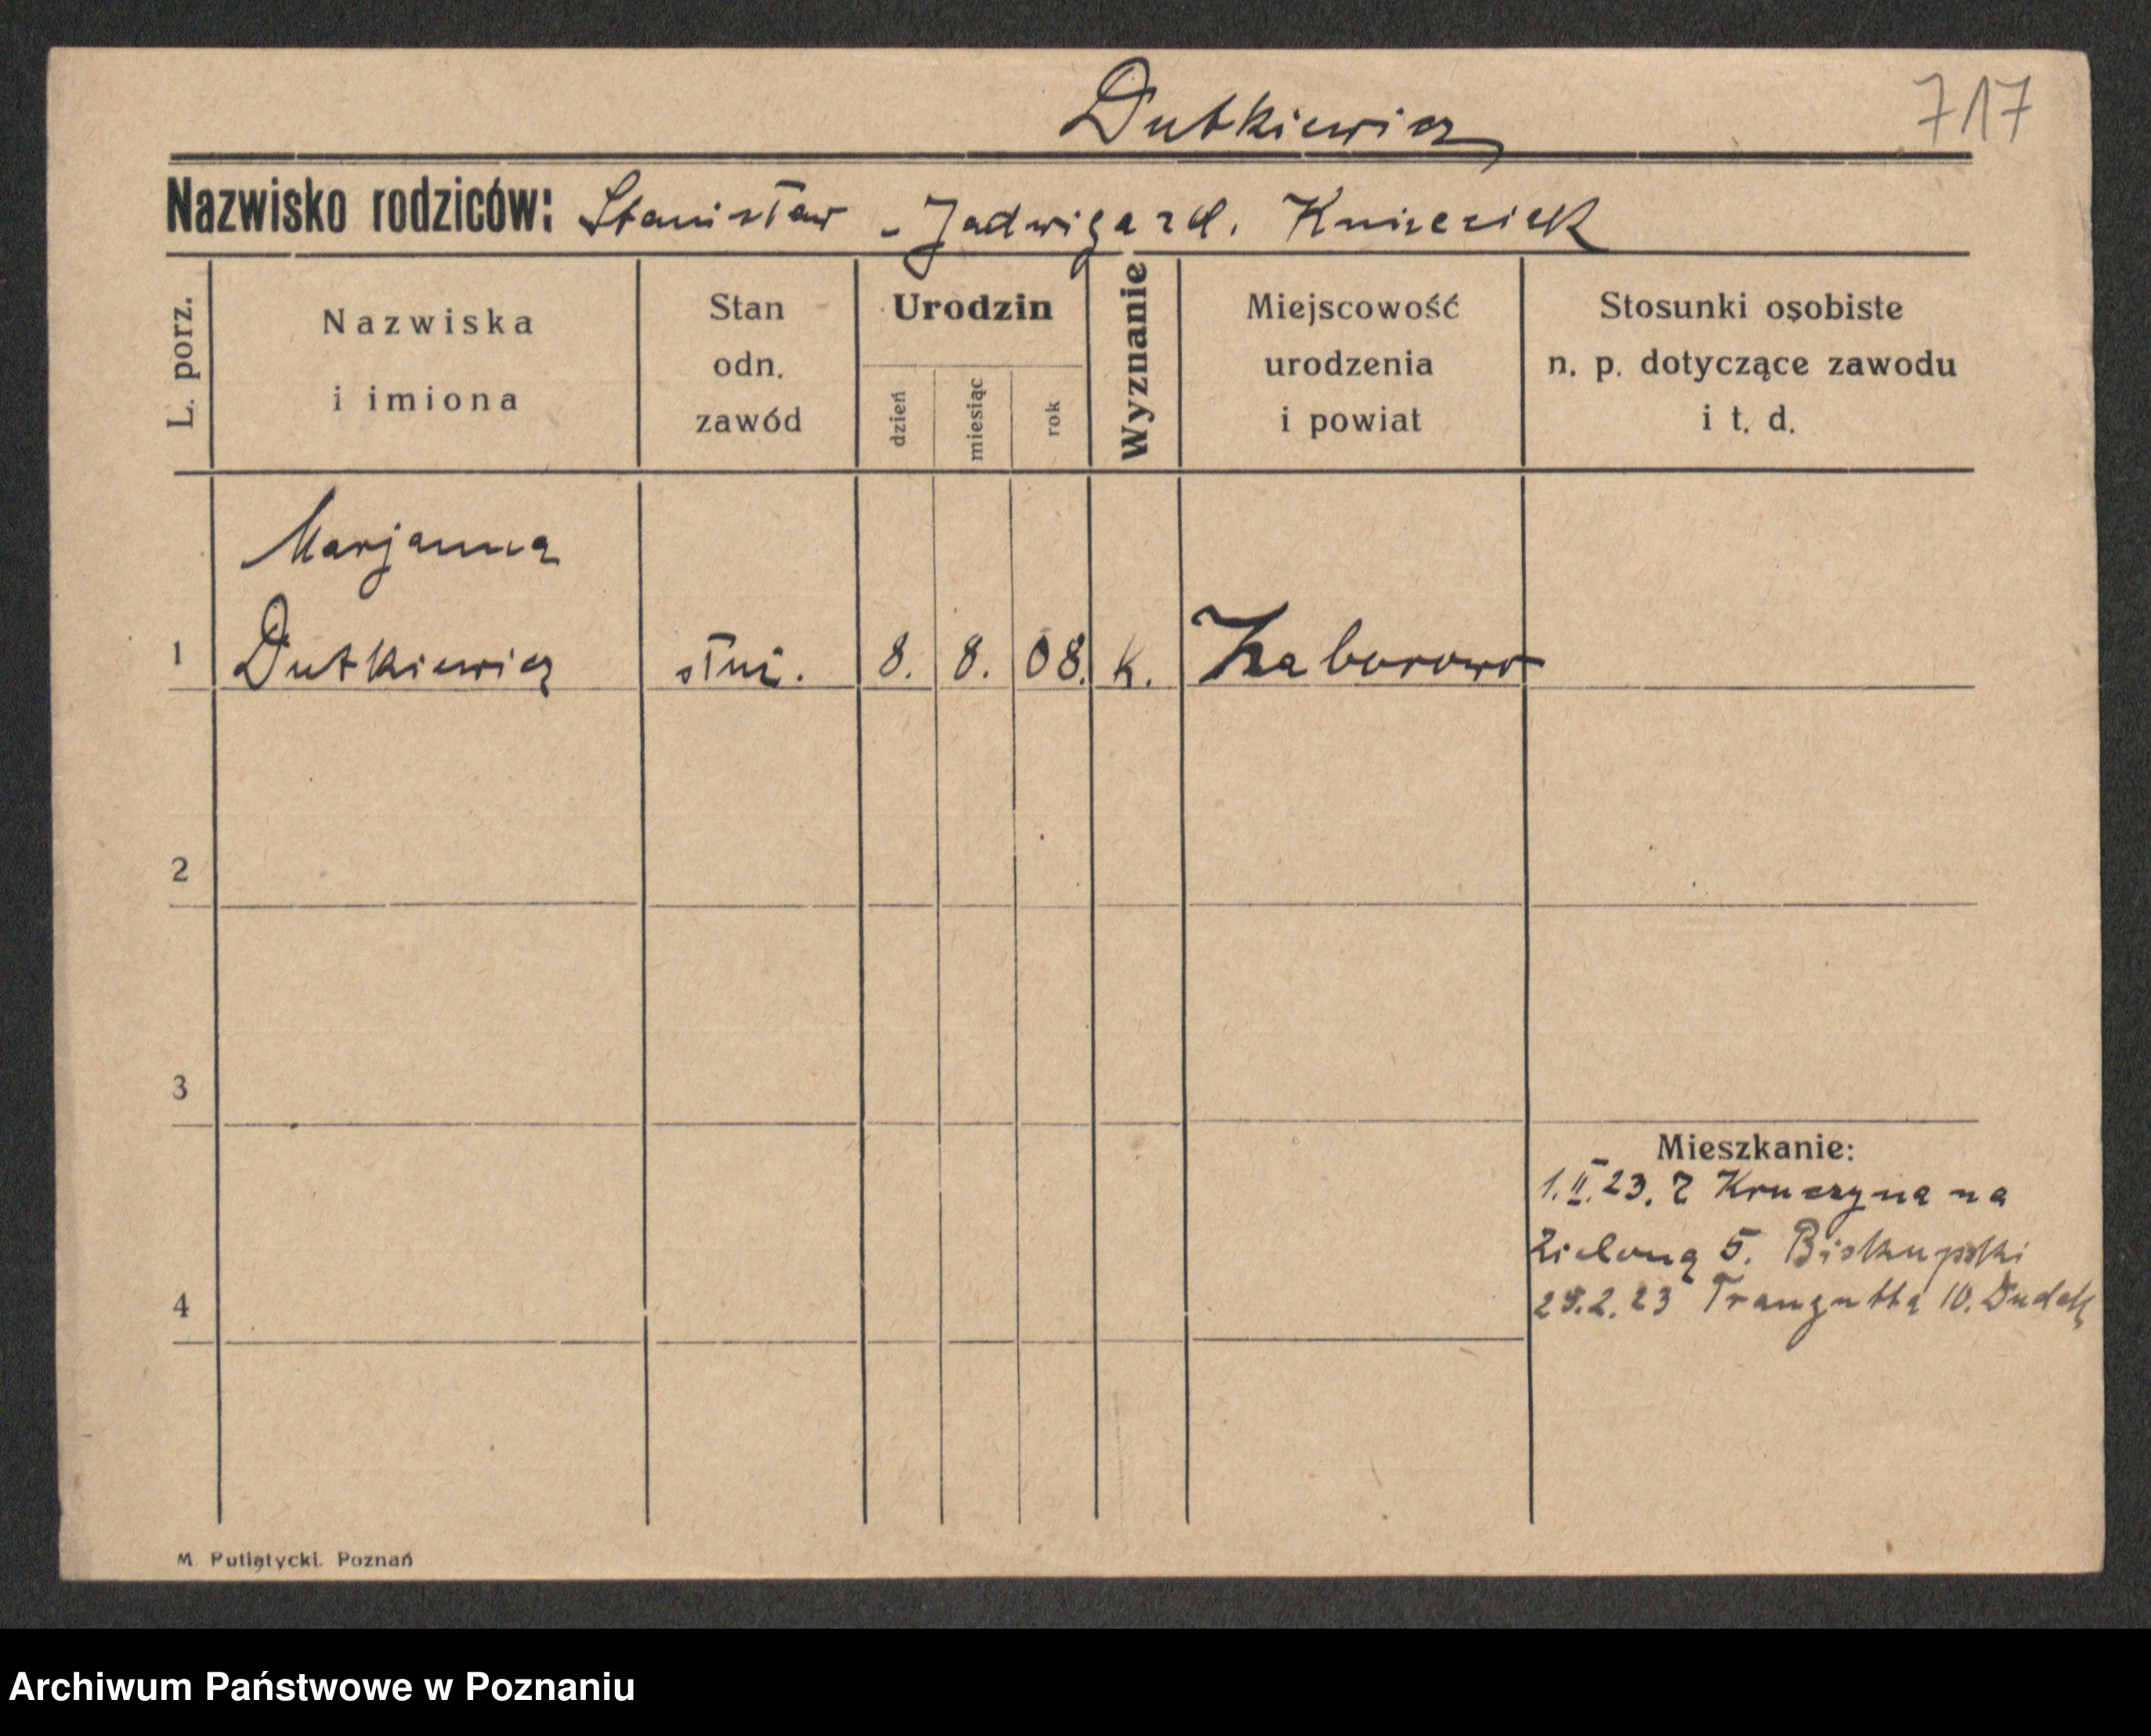 Dutkiewicz
717
Nazwisko rodziców: Stanisław - Jadwiga zd.
L. porz.
Nazwiska
i imiona
Stan
odn.
zawód
Urodzin
dzień
miesiąc
rok
Wyznanie
Miejscowość
urodzenia
i powiat
Stosunki osobiste
n. p. dotyczące zawodu
i t. d.
Marjanna
1 Dutkiewicz służ. 8. 8. 08. k. Zaborowo
2
3
4
Mieszkanie:
1.II.23. Z Kruczyna na
Zieloną 5. Biskupski
2.23 Traugutta 10.
M. Putiatycki. Poznań
Archiwum Państwowe w Poznaniu